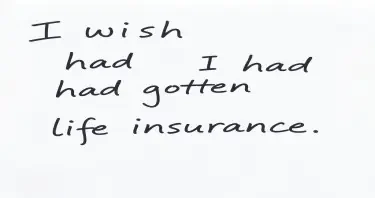 I wish
had I had
had gotten
life insurance.